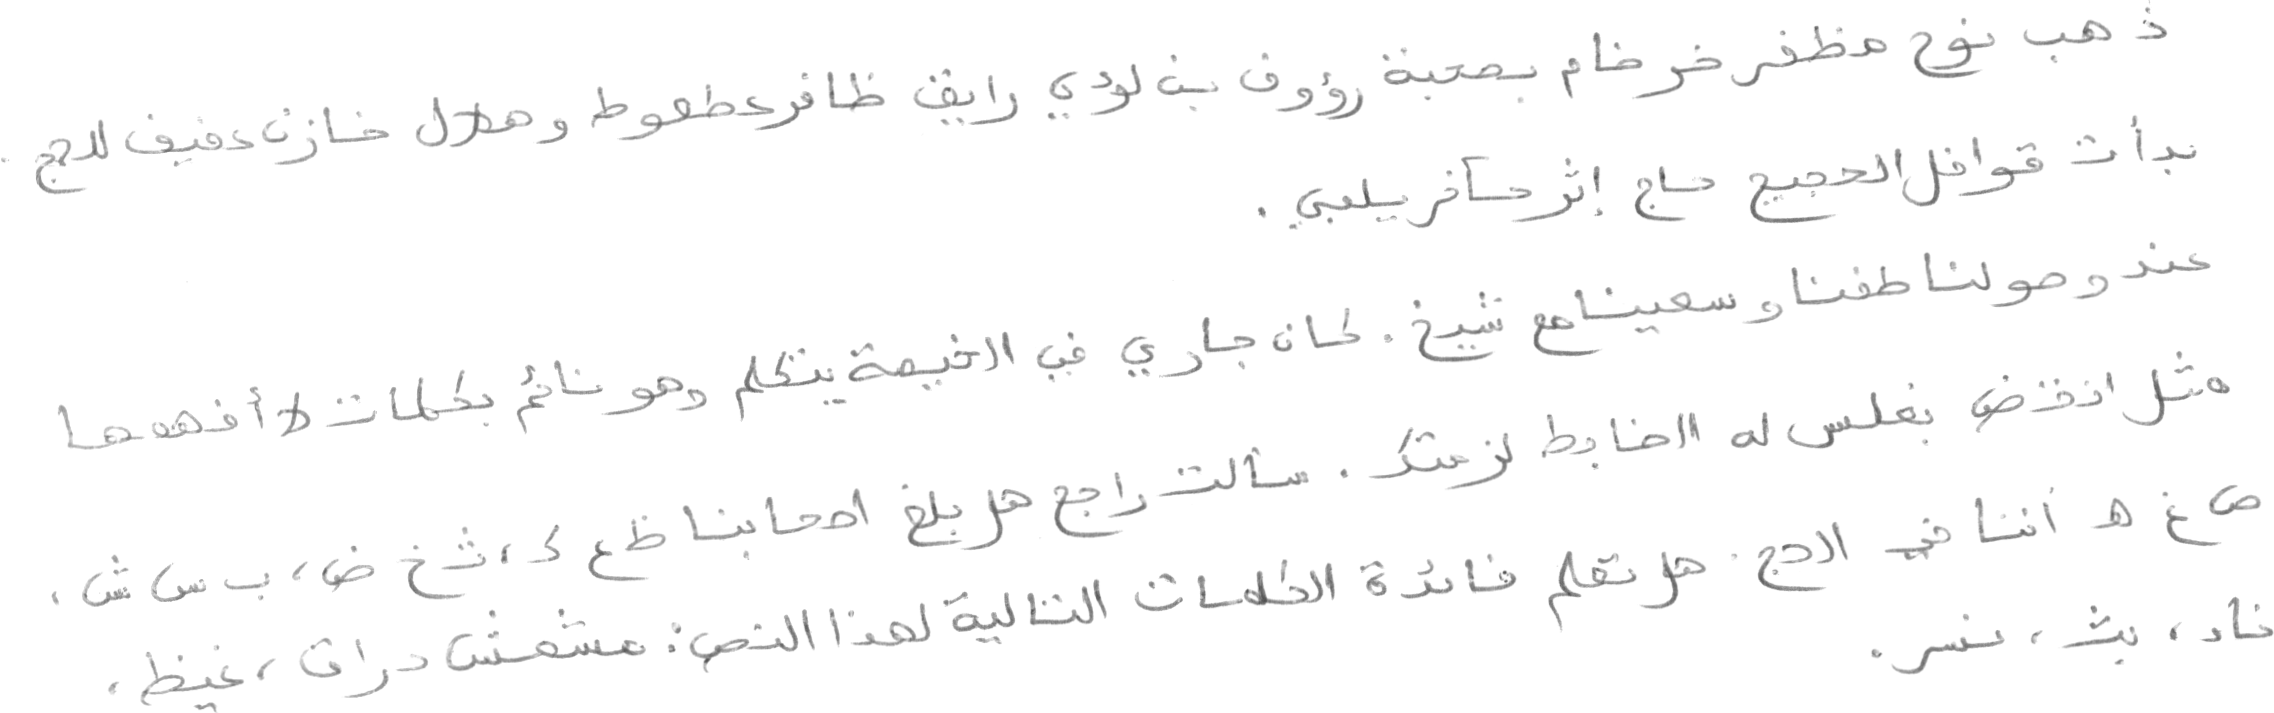 ذهب نوح مظفر خرخام بصحبة رؤوف بن لؤي رايق ظافر عطعوط وهلال خازن عفيف للحج.
بدأت قوافل الحجيج حاج إثر حآفر يلعبي.
عند وصولنا طفنا وسعينا مع شيخ. كان جاري في الخيمة يتكلم وهو نائم بكلمات لا أفهمها
مثل انقض بغلس له الضابط لزمتك. سألت راجح هل بلغ اصحابنا ظ ع ك، ث خ ض، ب س ش،
ص غ ه أننا في الحج. هل تعلم فائدة الكلمات التالية لهذا النص: مشمش دراق، غيظ،
ناد، بث، نسر.